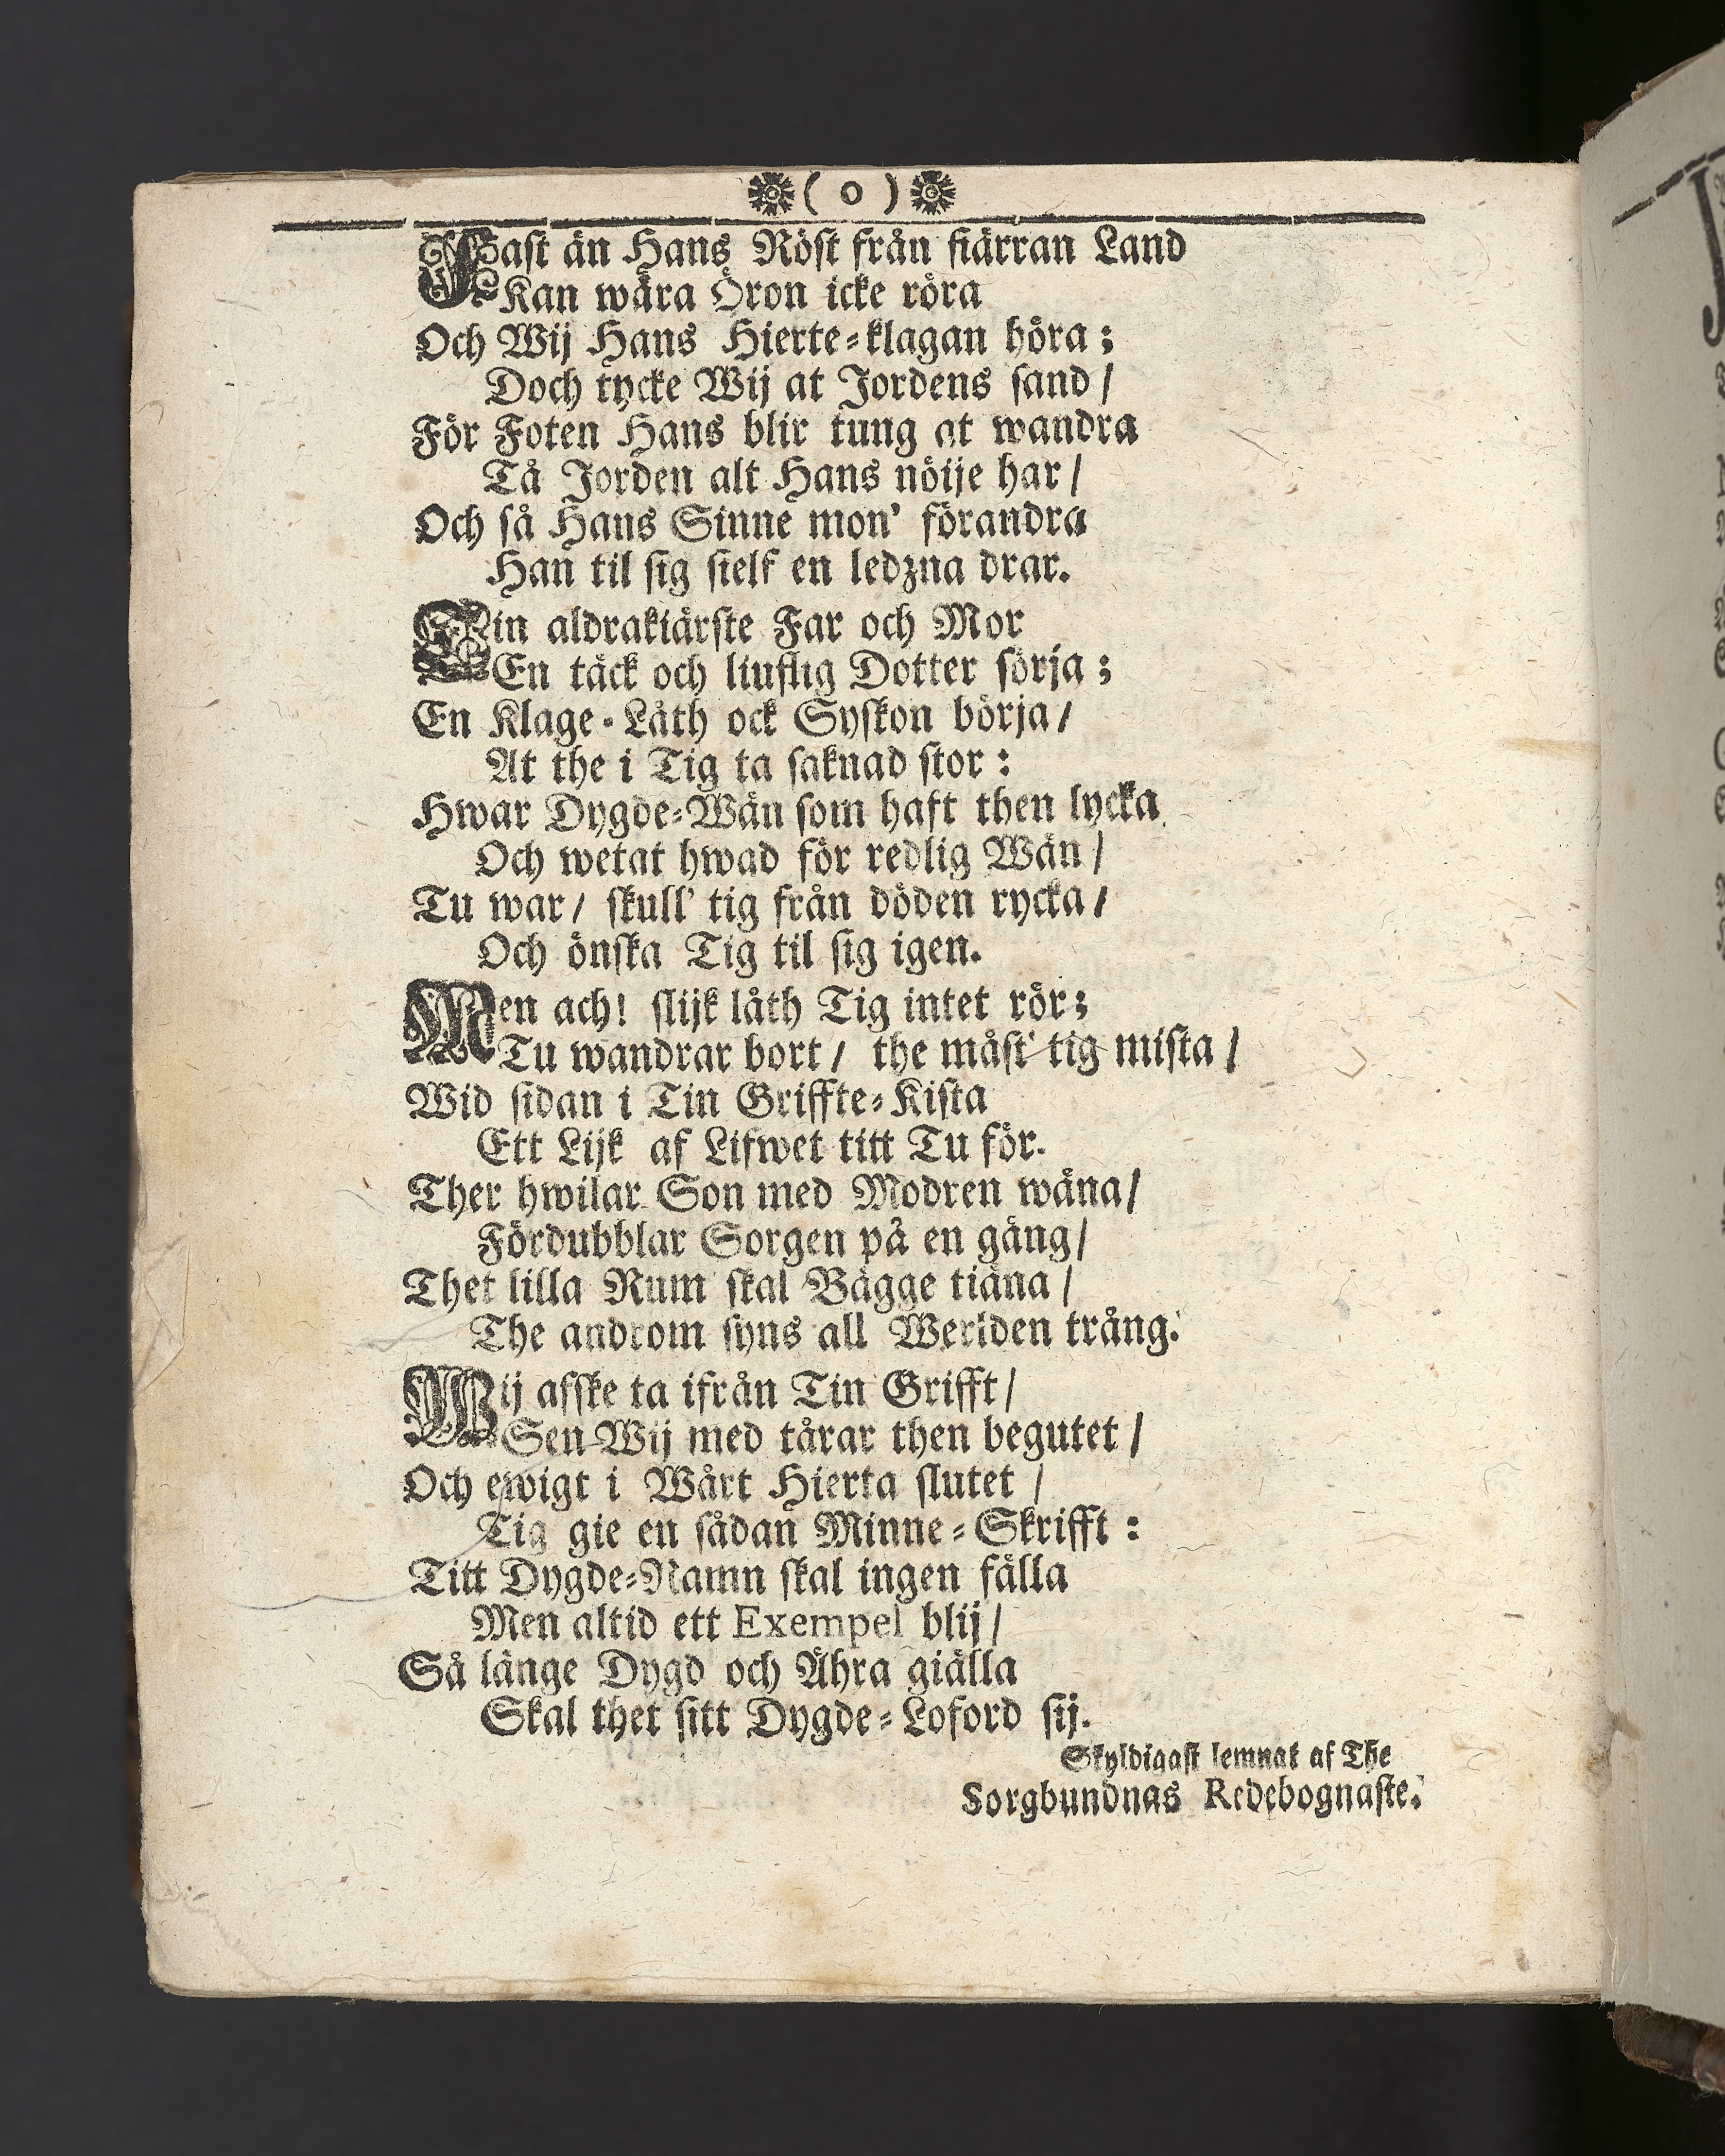 ( o )
Fast än Hans Röst från fiärran Land
Kan wåra Öron icke röra
Och Wij Hans Hierte-klagan höra;
Doch tycke Wij at Jordens sand/
För Foten Hans blir tung at wandra
Tå Jorden alt Hans nöije har/
Och så Hans Sinne mon' förandra
Han til sig sielf en ledzna drar.
Tin aldrakiärste Far och Mor
En täck och liuflig Dotter sörja;
En Klage-Låth ock Syskon börja/
At the i Tig ta saknad stor:
Hwar Dygde-Wän som haft then lycka
Och wetat hwad för redlig Wän/
Tu war/ skull' tig från döden rycka/
Och önska Tig til sig igen.
Men ach! slijk låth Tig intet rör;
Tu wandrar bort/ the måst' tig mista/
Wid sidan i Tin Griffte-Kista
Ett Lijk af Lifwet titt Tu för.
Ther hwilar Son med Modren wäna/
Fördubblar Sorgen på en gång/
Thet lilla Rum skal Bägge tiäna/
The androm syns all Werlden trång.
Wij afske ta ifrån Tin Grifft/
Sen Wij med tårar then begutet/
Och ewigt i Wårt Hierta slutet/
Tig gie en sådan Minne-Skrifft:
Titt Dygde-Namn skal ingen fälla
Men altid ett Exempel blij/
Så länge Dygd och Ähra giälla
Skal thet sitt Dygde-Loford sij.
Skyldigast lemnat af The
Sorgbundnas Redebognaste.